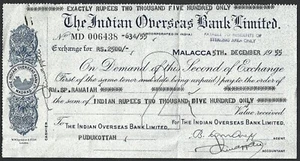 EXACTLY RUPEES TWO THOUSAND FIVE HUNDRED ONLY
The Indian Overseas Bank Limited.
No MD 006438 *434/55
Exchange for RS.2500/-
MALACCA 5TH. DECEMBER 1955
On Demand of this Second of Exchange
(First of the same tenor and date being unpaid) pay to the order
of
the sum of INDIAN RUPEES TWO THOUSAND FIVE HUNDRED ONLY
Value received
To THE INDIAN OVERSEAS BANK LIMITED,
FOR THE INDIAN OVERSEAS BANK LIMITED.
PUDUKOTTAH